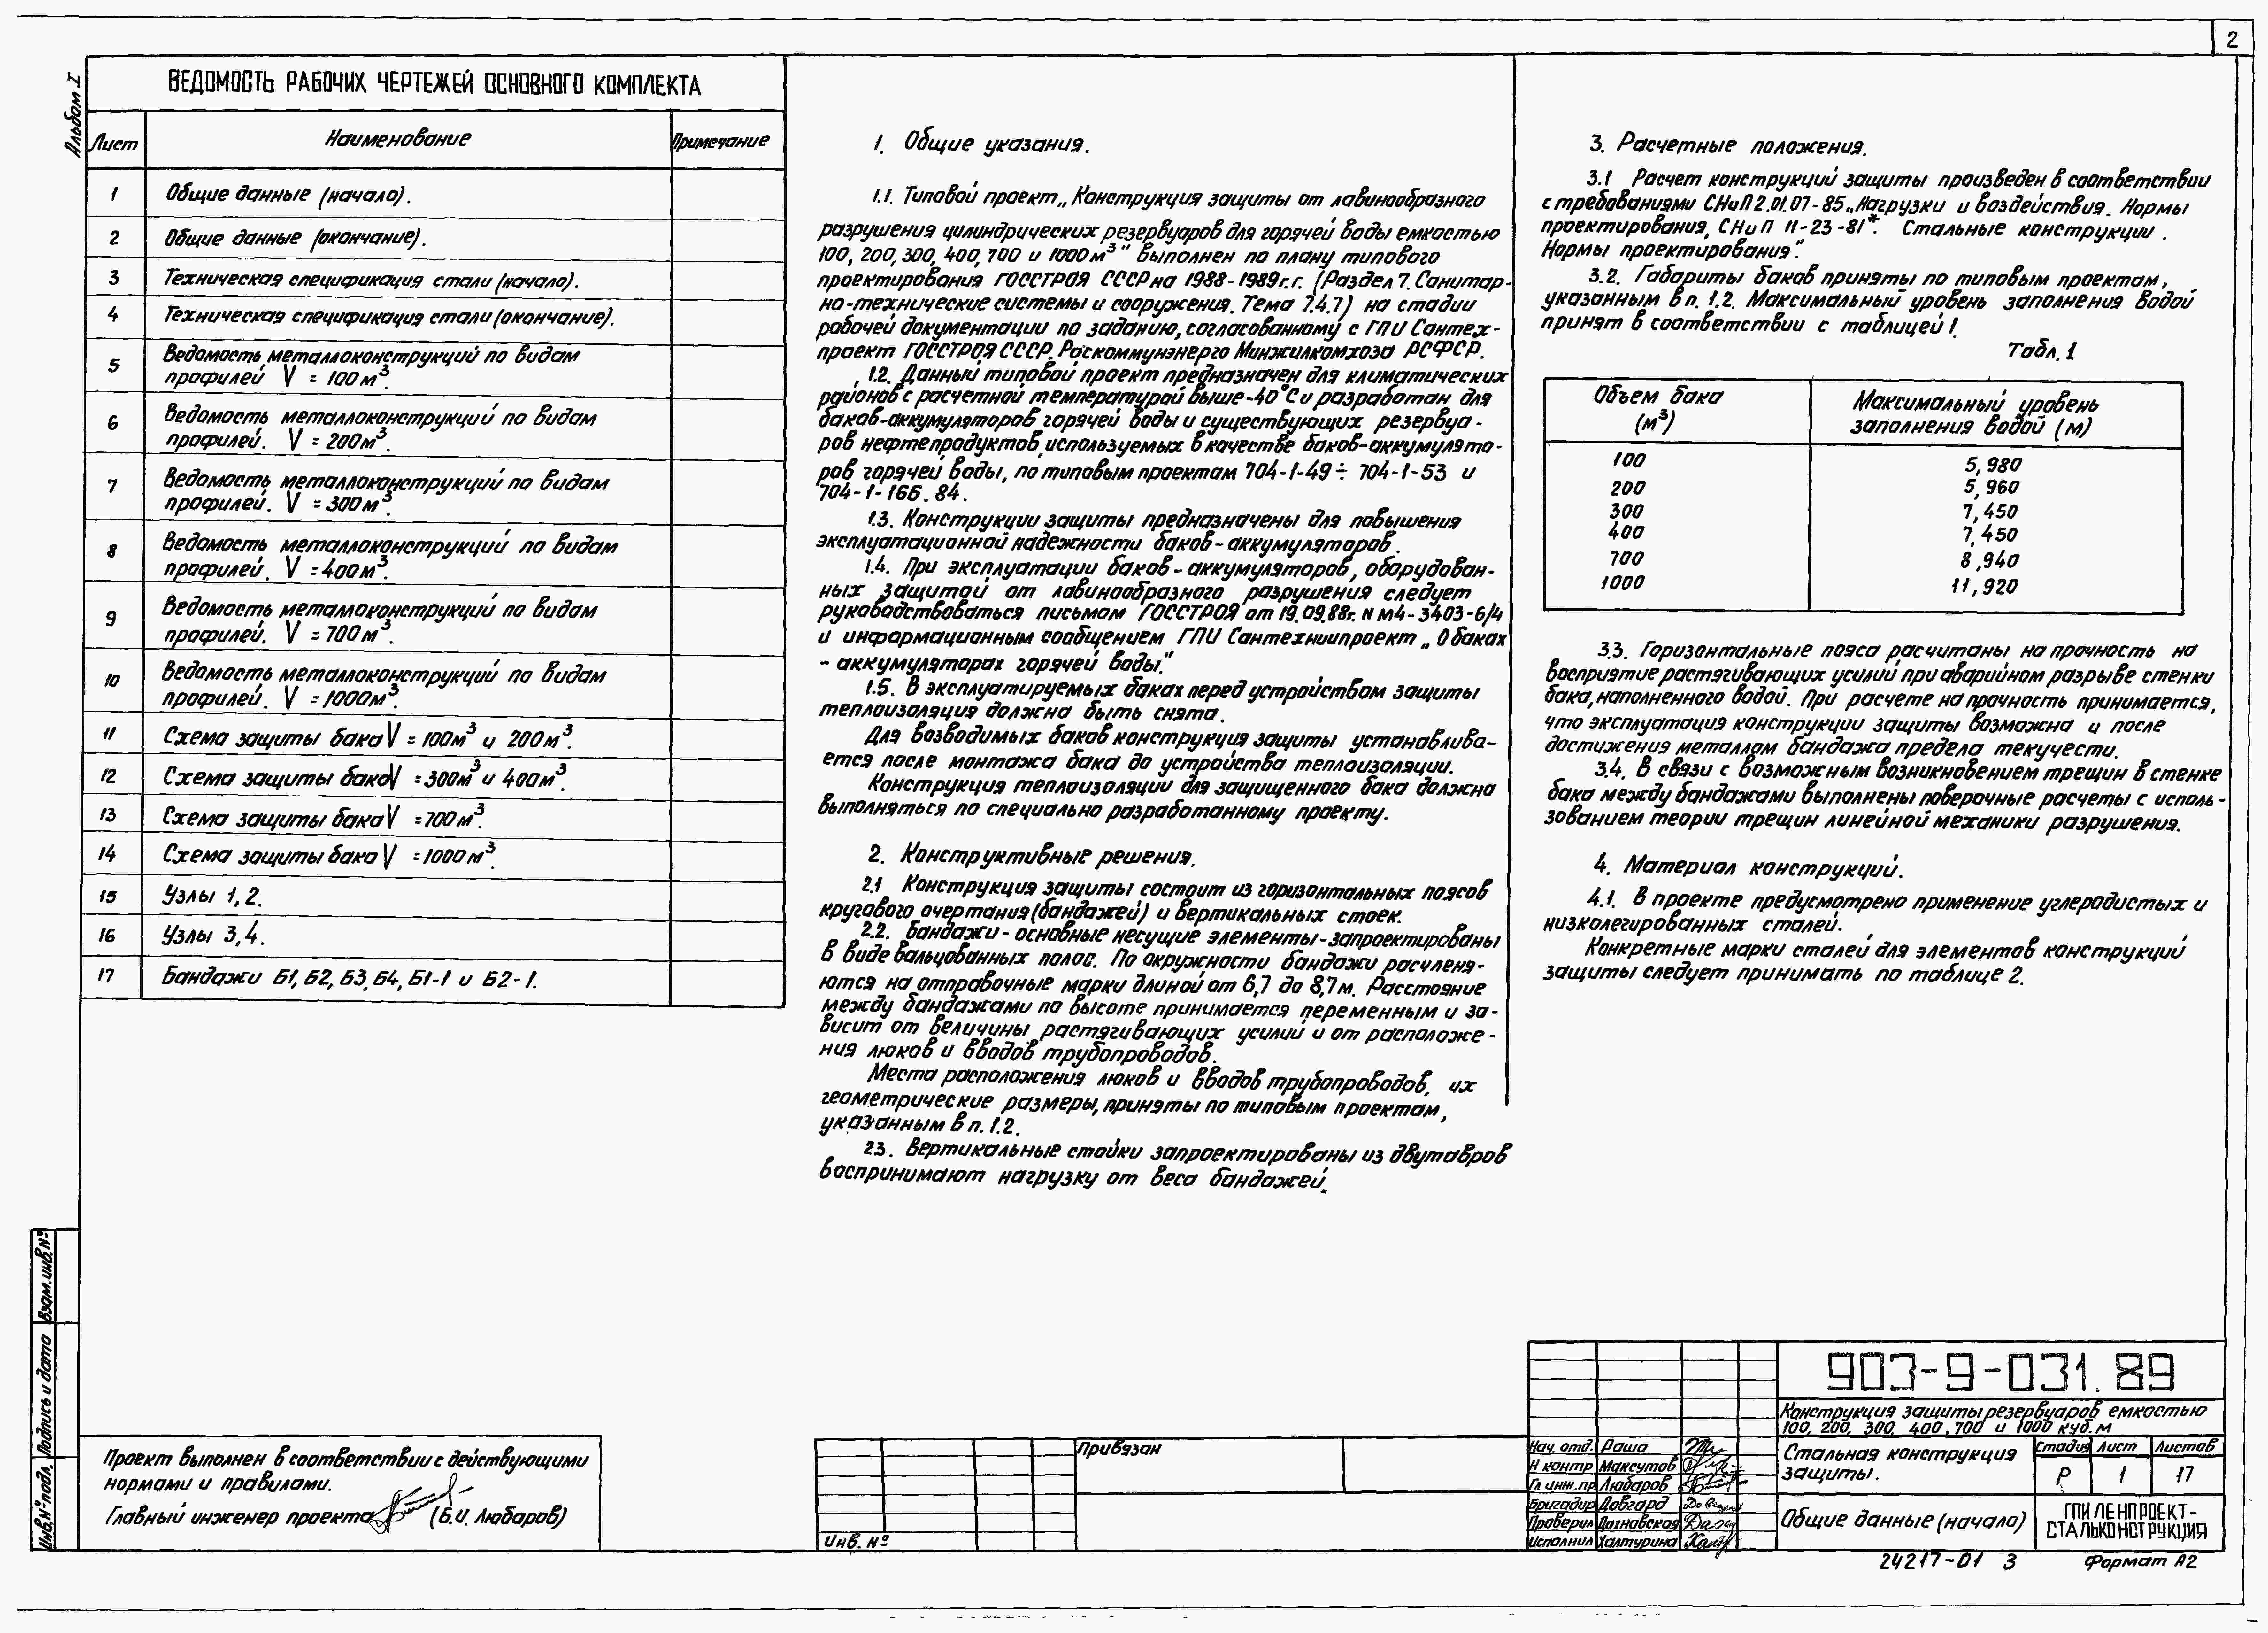 2
Альбом I
ВЕДОМОСТЬ РАБОЧИХ ЧЕРТЕЖЕЙ ОСНОВНОГО КОМПЛЕКТА
Лист Наименование Примечание
1 Общие данные (начало).
2 Общие данные (окончание).
3 Техническая спецификация стали (начало).
4 Техническая спецификация стали (окончание).
5 Ведомость металлоконструкций по видам
профилей V = 100м³.
6 Ведомость металлоконструкций по видам
профилей. V = 200м³.
7 Ведомость металлоконструкций по видам
профилей. V = 300м³.
8 Ведомость металлоконструкций по видам
профилей. V = 400м³.
9 Ведомость металлоконструкций по видам
профилей. V = 700м³.
10 Ведомость металлоконструкций по видам
профилей. V = 1000м³.
11 Схема защиты бака V = 100м³ и 200м³.
12 Схема защиты бака V = 300м³ и 400м³.
13 Схема защиты бака V = 700м³.
14 Схема защиты бака V = 1000м³.
15 Узлы 1, 2.
16 Узлы 3, 4.
17 Бандажи Б1, Б2, Б3, Б4, Б1-1 и Б2-1.
1. Общие указания.
1.1. Типовой проект „Конструкция защиты от лавинообразного
разрушения цилиндрических резервуаров для горячей воды емкостью
100, 200, 300, 400, 700 и 1000м³" выполнен по плану типового
проектирования ГОССТРОЯ СССР на 1988-1989г.г. (Раздел 7. Санитар-
но-технические системы и сооружения. Тема 7.4.7) на стадии
рабочей документации по заданию, согласованному с ГПИ Сантех-
проект ГОССТРОЯ СССР. Роскоммунэнерго Минжилкомхоза РСФСР.
1.2. Данный типовой проект предназначен для климатических
районов с расчетной температурой выше -40°С и разработан для
баков-аккумуляторов горячей воды и существующих резервуа-
ров нефтепродуктов, используемых в качестве баков-аккумулято-
ров горячей воды, по типовым проектам 704-1-49 ÷ 704-1-53 и
704-1-166.84.
1.3. Конструкции защиты предназначены для повышения
эксплуатационной надежности баков-аккумуляторов.
1.4. При эксплуатации баков-аккумуляторов, оборудован-
ных защитой от лавинообразного разрушения следует
руководствоваться письмом ГОССТРОЯ от 19.09.88г. N М4-3403-6/4
и информационным сообщением ГПИ Сантехниипроект „О баках
-аккумуляторах горячей воды."
1.5. В эксплуатируемых баках перед устройством защиты
теплоизоляция должна быть снята.
Для возводимых баков конструкция защиты устанавлива-
ется после монтажа бака до устройства теплоизоляции.
Конструкция теплоизоляции для защищенного бака должна
выполняться по специально разработанному проекту.
2. Конструктивные решения.
2.1 Конструкция защиты состоит из горизонтальных поясов
кругового очертания (бандажей) и вертикальных стоек.
2.2. Бандажи - основные несущие элементы - запроектированы
в виде вальцованных полос. По окружности бандажи расчленя-
ются на отправочные марки длиной от 6,7 до 8,7м. Расстояние
между бандажами по высоте принимается переменным и за-
висит от величины растягивающих усилий и от расположе-
ния люков и вводов трубопроводов.
Места расположения люков и вводов трубопроводов, их
геометрические размеры, приняты по типовым проектам,
указанным в п. 1.2.
2.3. Вертикальные стойки запроектированы из двутавров
воспринимают нагрузку от веса бандажей.
3. Расчетные положения.
3.1 Расчет конструкций защиты произведен в соответствии
с требованиями СНиП 2.01.07-85 „Нагрузки и воздействия. Нормы
проектирования, СНиП II-23-81*. Стальные конструкции.
Нормы проектирования".
3.2. Габариты баков приняты по типовым проектам,
указанным в п. 1.2. Максимальный уровень заполнения водой
принят в соответствии с таблицей 1.
Табл. 1
Объем бака Максимальный уровень
(м³) заполнения водой (м)
100 5,980
200 5,960
300 7,450
400 7,450
700 8,940
1000 11,920
3.3. Горизонтальные пояса расчитаны на прочность на
восприятие растягивающих усилий при аварийном разрыве стенки
бака, наполненного водой. При расчете на прочность принимается,
что эксплуатация конструкции защиты возможна и после
достижения металлом бандажа предела текучести.
3.4. В связи с возможным возникновением трещин в стенке
бака между бандажами выполнены поверочные расчеты с исполь-
зованием теории трещин линейной механики разрушения.
4. Материал конструкций.
4.1. В проекте предусмотрено применение углеродистых и
низколегированных сталей.
Конкретные марки сталей для элементов конструкций
защиты следует принимать по таблице 2.
Взам. инв. №
Подпись и дата
Инв. № подл.
Проект выполнен в соответствии с действующими
нормами и правилами.
Главный инженер проекта (Б.И. Любаров)
Привязан
Инв. №
903-9-031.89
Конструкция защиты резервуаров емкостью
100, 200, 300, 400, 700 и 1000 куб.м
Нач. отд. Раша
Н контр Максутов
Гл инж. пр Любаров
Бригадир Довгард
Проверил Дахнавская
Исполнил Халтурина
Стальная конструкция
защиты.
Стадия Лист Листов
Р 1 17
Общие данные (начало)
ГПИ ЛЕНПРОЕКТ-
СТАЛЬКОНСТРУКЦИЯ
24217-01 3 Формат А2